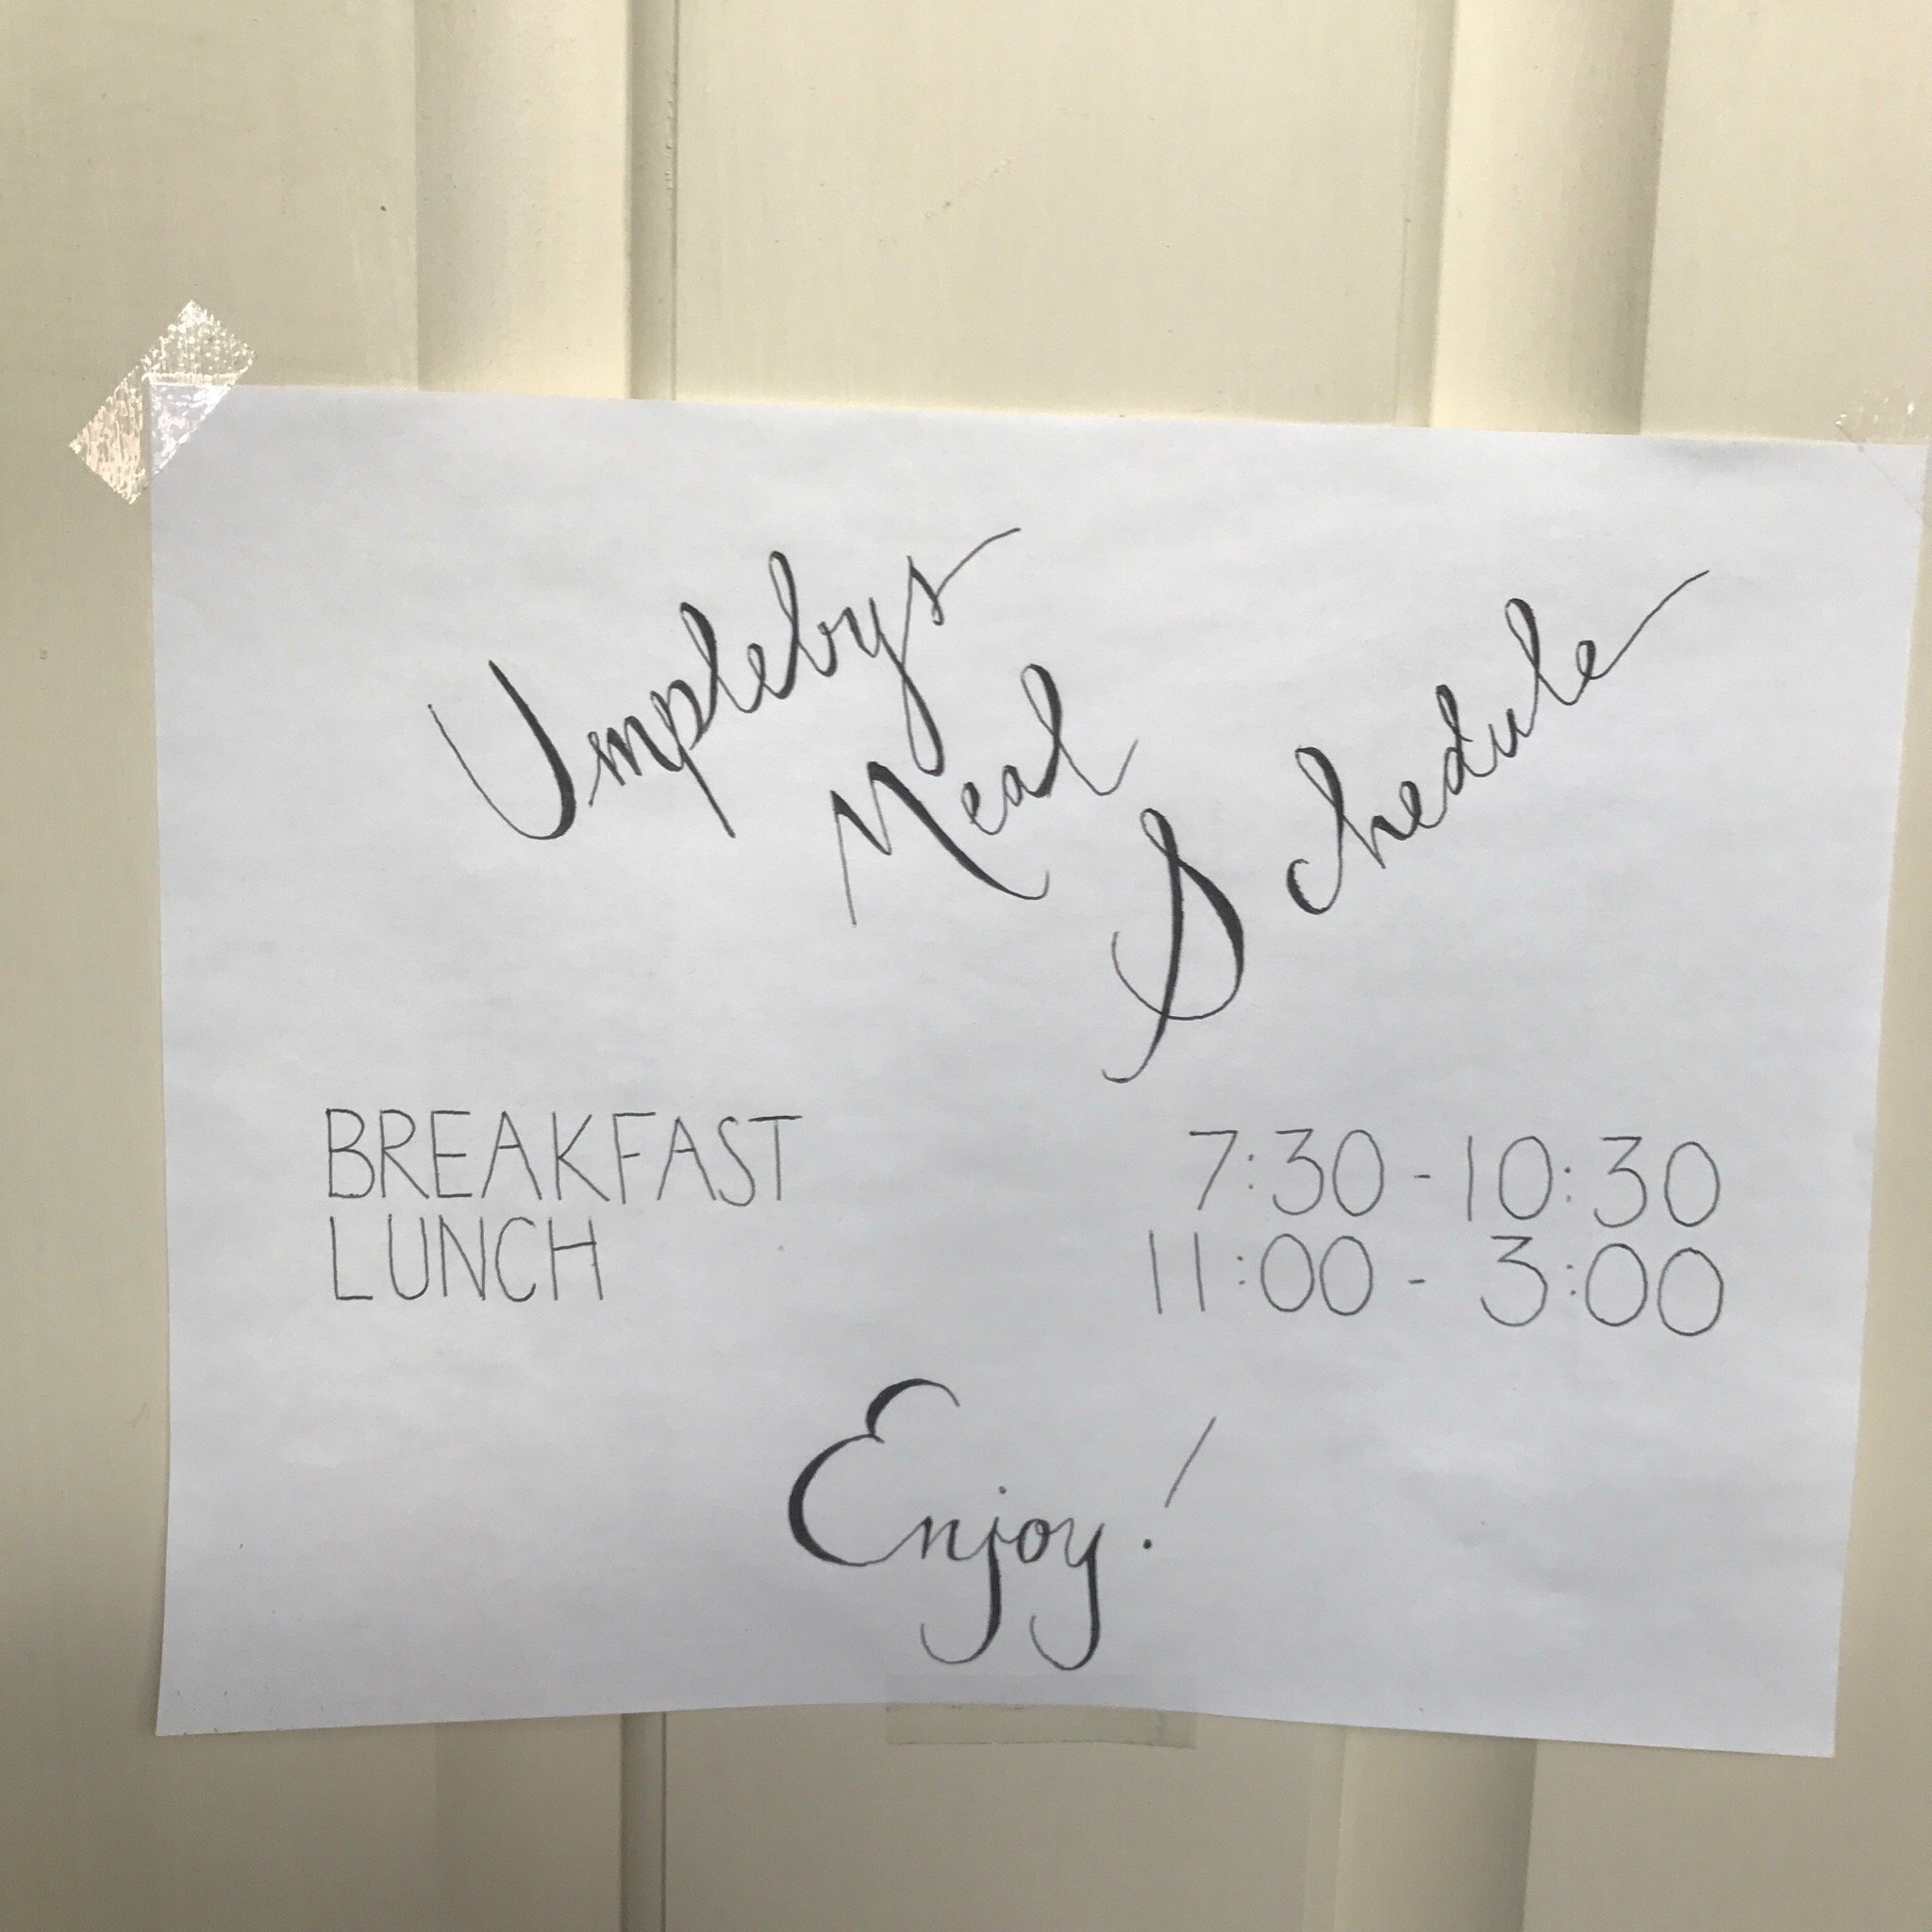 Umplebys
Meal
Schedule
BREAKFAST 7:30 - 10:30
LUNCH 11:00 - 3:00
Enjoy!